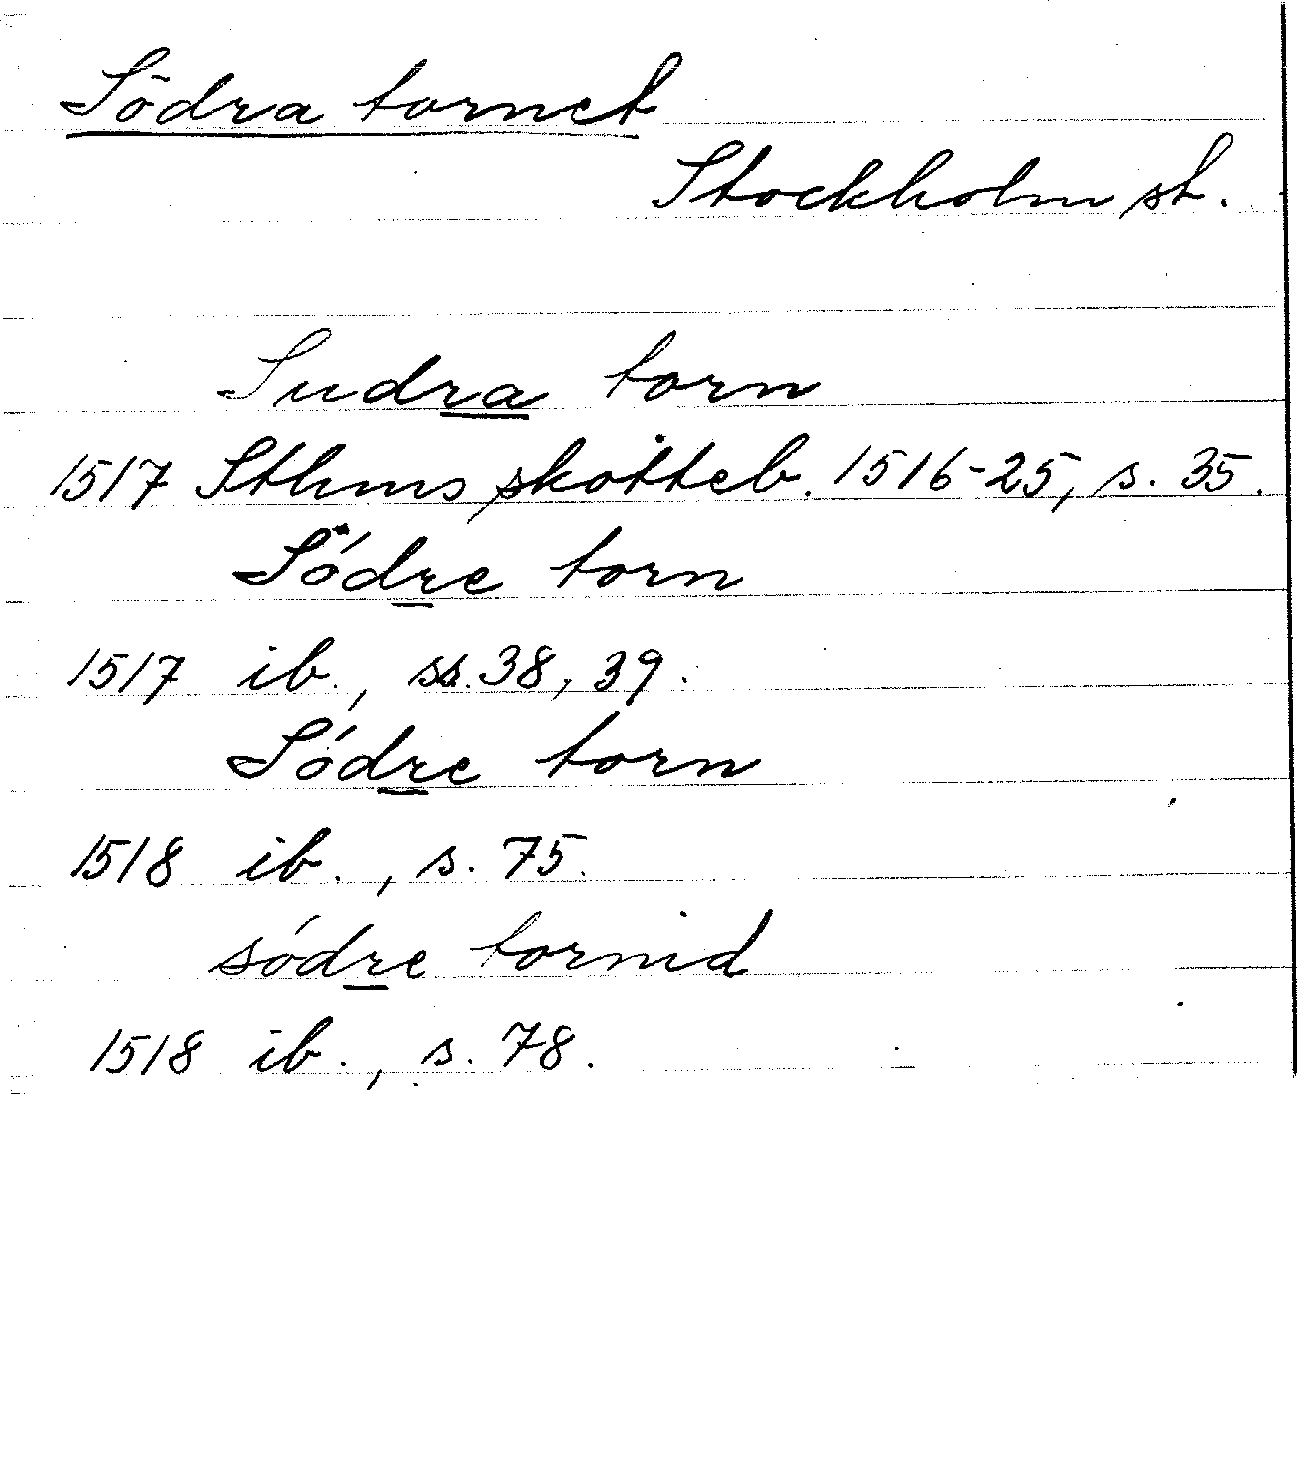 Södra tornet
Stockholm st.
Sudra torn
1517 Sthms skotteb. 1516-25, s. 35.
Södre torn
1517 ib., ss. 38, 39.
Södre torn
1518 ib., s. 75.
södre tornid
1518 ib., s. 78.